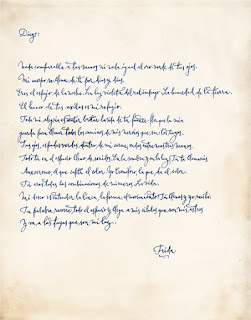 Diego:
Nada comparable a tus manos ni nada igual al oro-verde de tus ojos.
Mi cuerpo se llena de ti por días y días.
Eres el espejo de la noche. La luz violeta del relámpago. La humedad de la tierra.
El hueco de tus axilas es mi refugio.
Toda mi alegría es sentir brotar la vida de tu fuente-flor que la mía
guarda para llenar todos los caminos de mis nervios que son los tuyos.
Tus ojos, espadas verdes dentro de mi carne, ondas entre nuestras manos.
Solo tú en el espacio lleno de sonidos. En la sombra y en la luz. Tú te llamarás
Auxocromo, el que capta el color. Yo Cromóforo, la que da el color.
Tú eres todas las combinaciones de números. La vida.
Mi deseo es entender la línea, la forma, el movimiento. Tú llenas y yo recibo.
Tu palabra recorre todo el espacio y llega a mis células que son mis astros
y va a las tuyas que son mi luz.
Frida